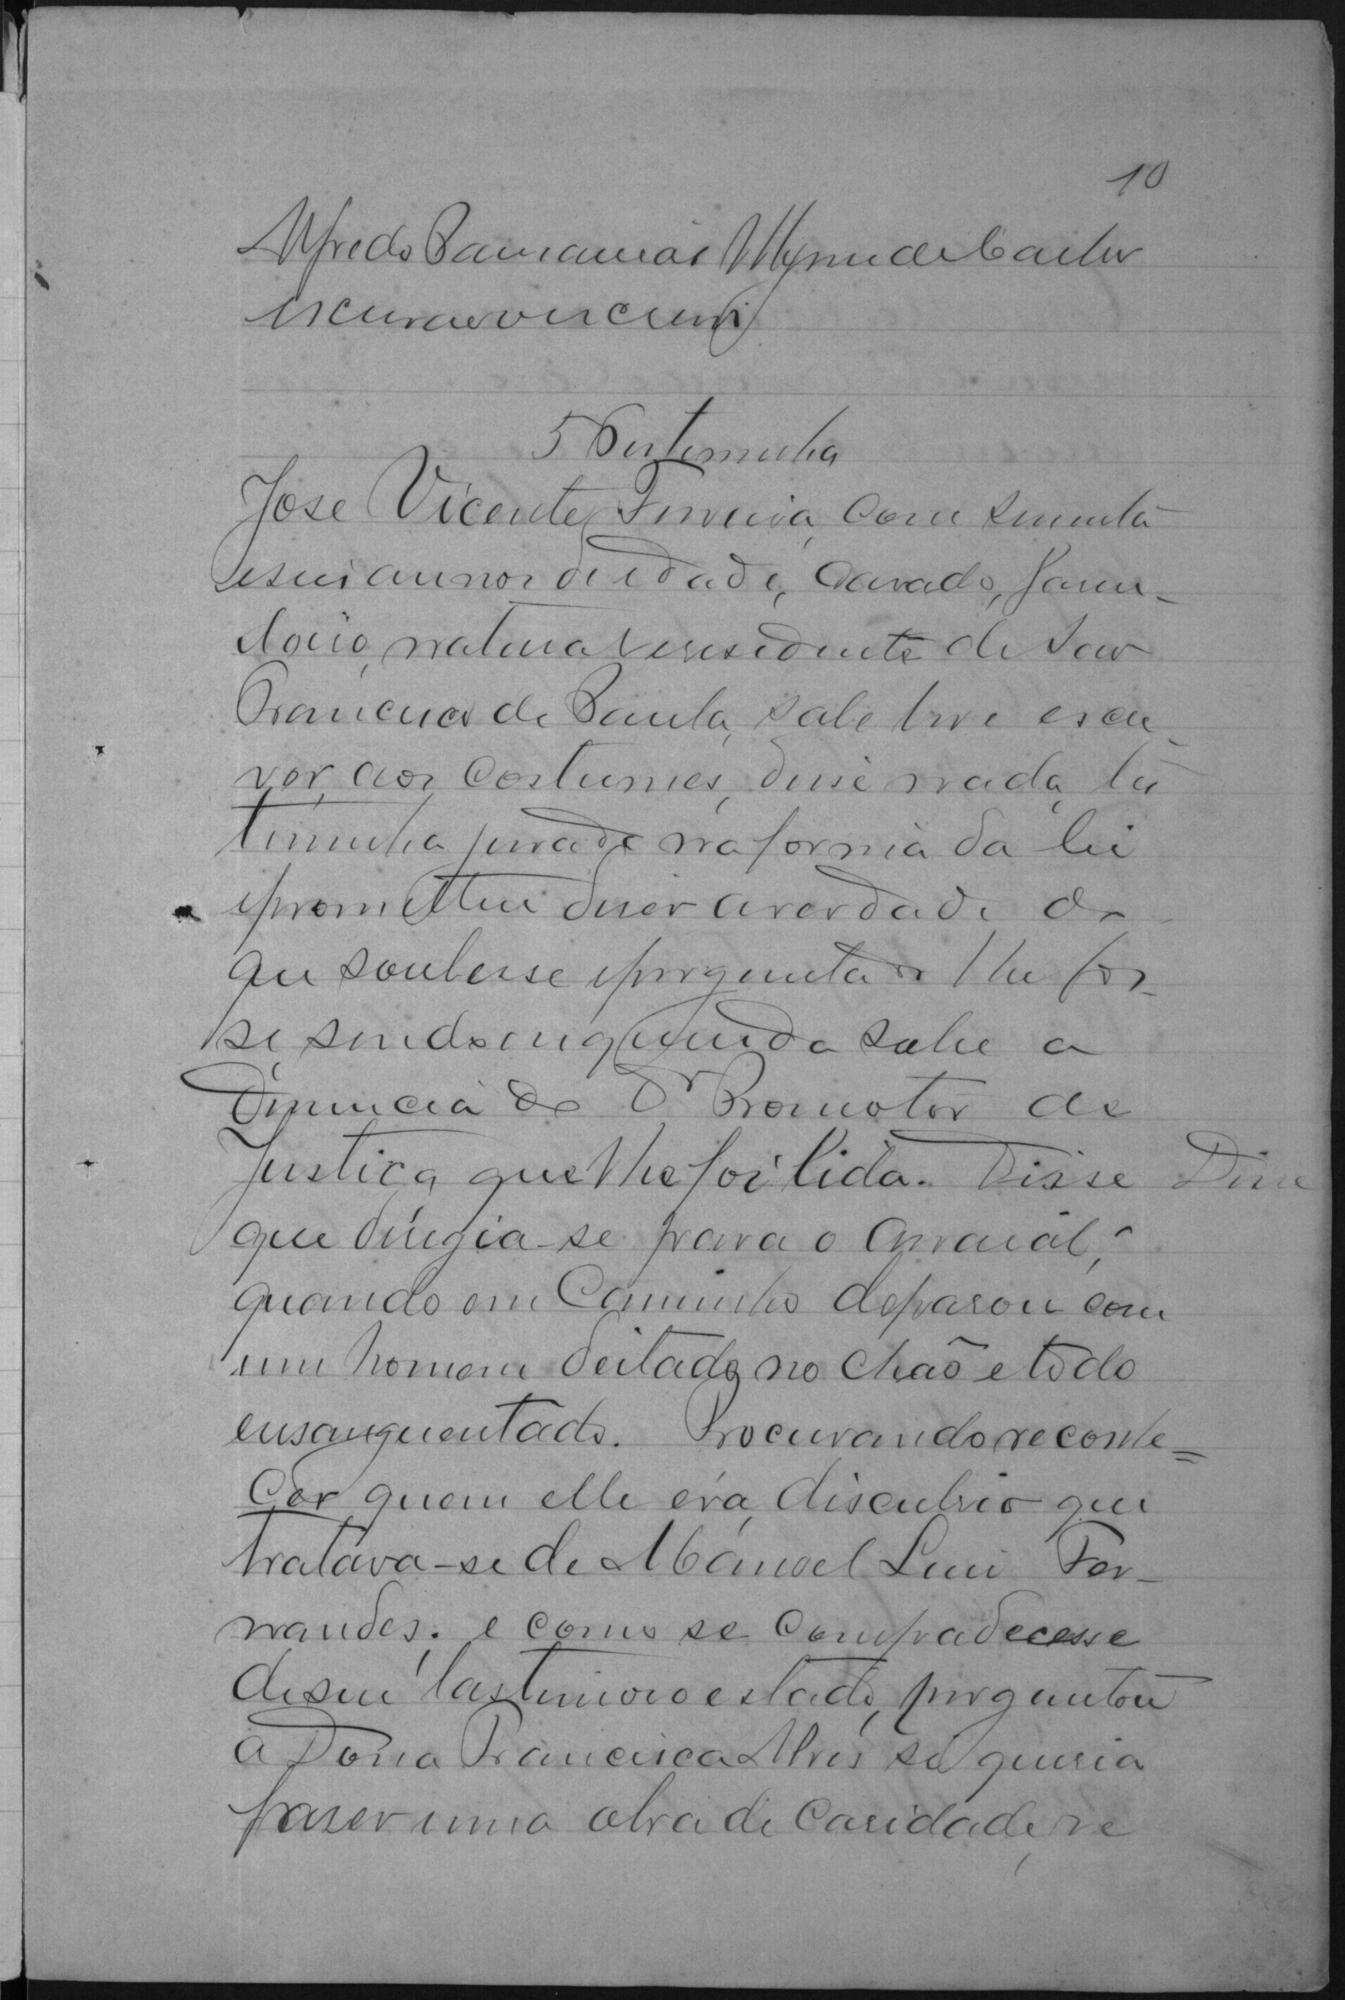 10
Alfredo
escrivão escrevi
5 Testemunha
Jose Vicente Ferreira, com secenta
eseis annos de edade, casado, Jorna-
leiro, natural eresidente de Sao
Francisco de Paula, sabe ler e escre-
ver, aos costumes, disse nada, tes
timunha jurada na forma da lei
eprometteu diser averdade do
que soubesse eperguntado lhe fos-
se sendo enquerida sobre a
Denuncia do Dr Promotor de
Justiça que lhe foi lida. Disse Disse
que dirigia-se para o arraial,
quando em Caminho deparou com
um homem deitado no chão e todo
ensanguentado. Procurando reconhe=
cer quem elle era, discubrio que
tratava-se de Manoel Luiz Fer-
nandes. e como se compadecesse
deseu lastimoso estado, perguntou
a Dona Francisca Alves se queria
faser uma obra de Caridade, re